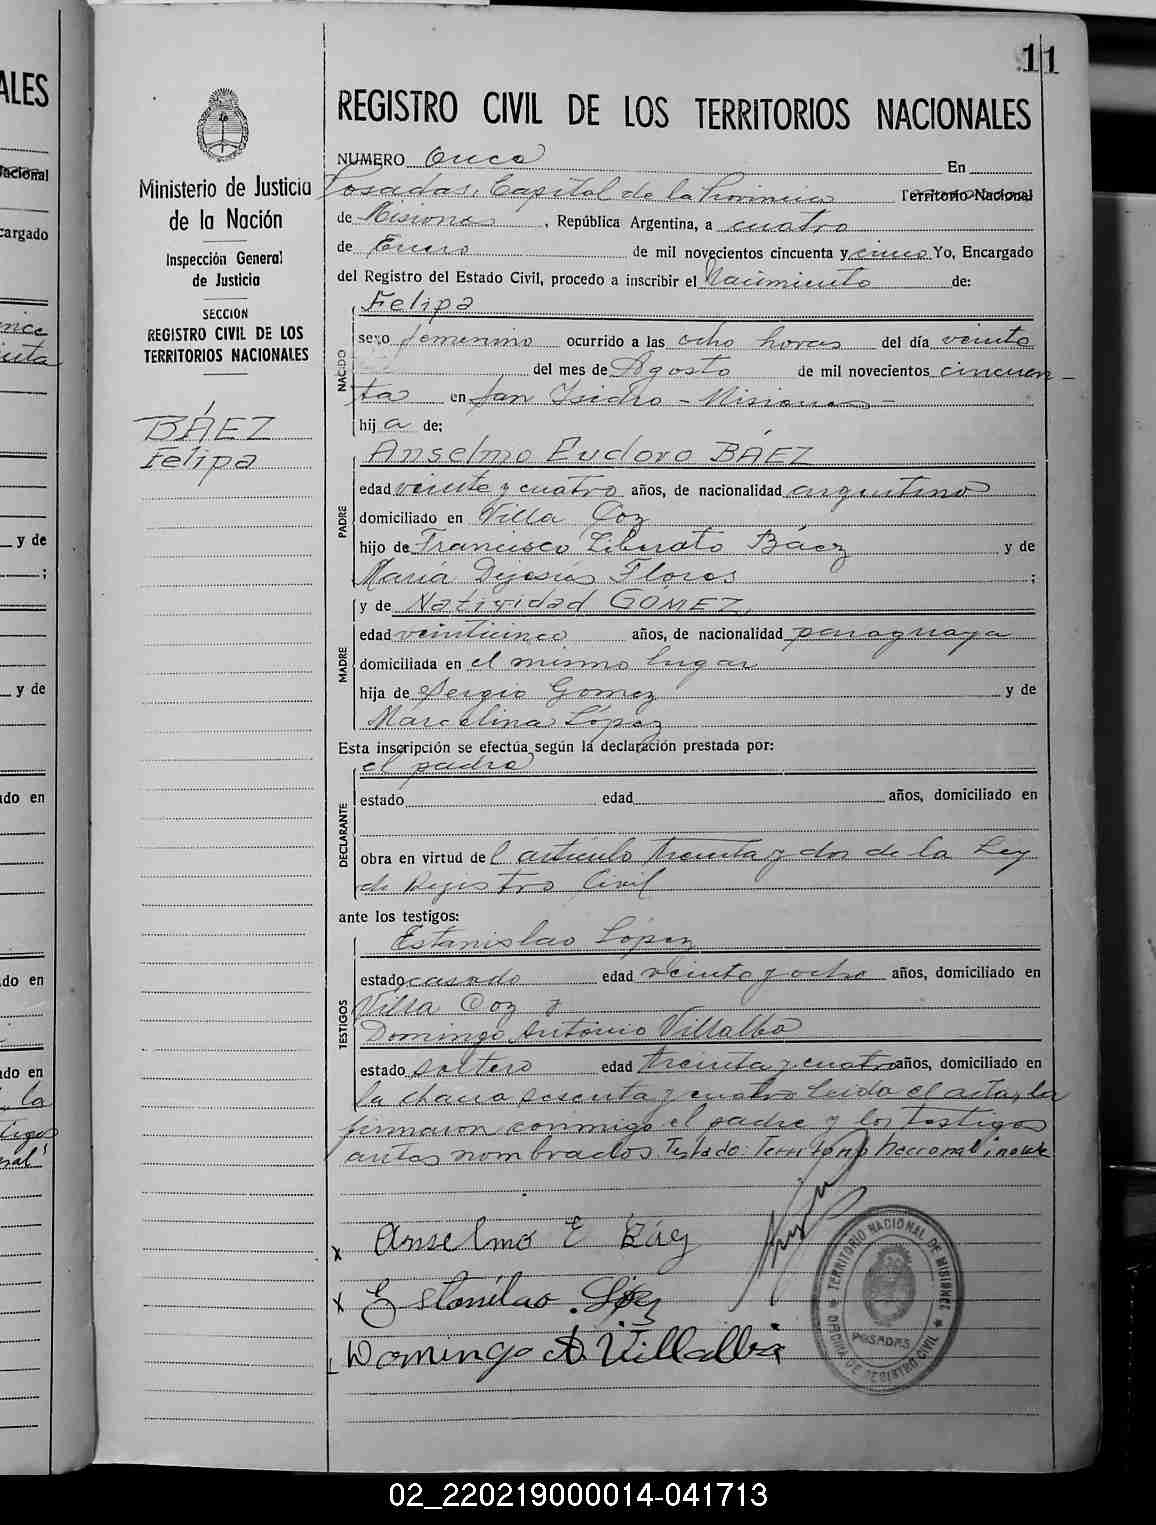 11
REGISTRO CIVIL DE LOS TERRITORIOS NACIONALES
Ministerio de Justicia
de la Nación
Inspección General
de Justicia
SECCIÓN
REGISTRO CIVIL DE LOS
TERRITORIOS NACIONALES
BÁEZ
Felipa
NUMERO Once En
Posadas, Capital de la Provincia Territorio Nacional
de Misiones, República Argentina, a cuatro
de Enero de mil novecientos cincuenta y cinco Yo, Encargado
del Registro del Estado Civil, procedo a inscribir el Nacimiento de:
NACIDO
Felipa
sexo femenino ocurrido a las ocho horas del día veinte
del mes de Agosto de mil novecientos cincuen-
ta en San Isidro - Misiones -
hij a de:
PADRE
Anselmo Eudoro BÁEZ
edad veinte y cuatro años, de nacionalidad argentino
domiciliado en Villa Coz
hijo de Francisco Liberato Báez y de
María Dejesús Flores ;
MADRE
y de Natividad GÓMEZ,
edad veinticinco años, de nacionalidad paraguaya
domiciliada en el mismo lugar
hija de Sergio Gomez y de
Marcelina López
Esta inscripción se efectúa según la declaración prestada por:
DECLARANTE
el padre
estado edad años, domiciliado en
obra en virtud del artículo treinta y dos de la Ley
de Registro Civil
ante los testigos:
TESTIGOS
Estanislao López
estado casado edad veinte y ocho años, domiciliado en
Villa Coz y
Domingo Antonio Villalba
estado soltero edad treinta y cuatro años, domiciliado en
la chacra sesenta y cuatro. Leida el acta, la
firmaron conmigo el padre y los testigos
antes nombrados. Testado: Territorio Nacional;
x Anselmo E Báez
x Estanilao López
Domingo A. Villalba
TERRITORIO NACIONAL DE MISIONES
POSADAS
OFICINA DE REGISTRO CIVIL
ALES
Nacional
cargado
y de
;
y de
do en
do en
do en
la
02_220219000014-041713